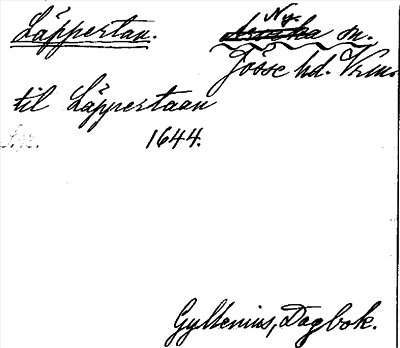 Läppertan. Ny.
Arvika sn.
Jösse hd. Vrml.
til Läppertaan
1644.
Gyllenius, Dagbok.